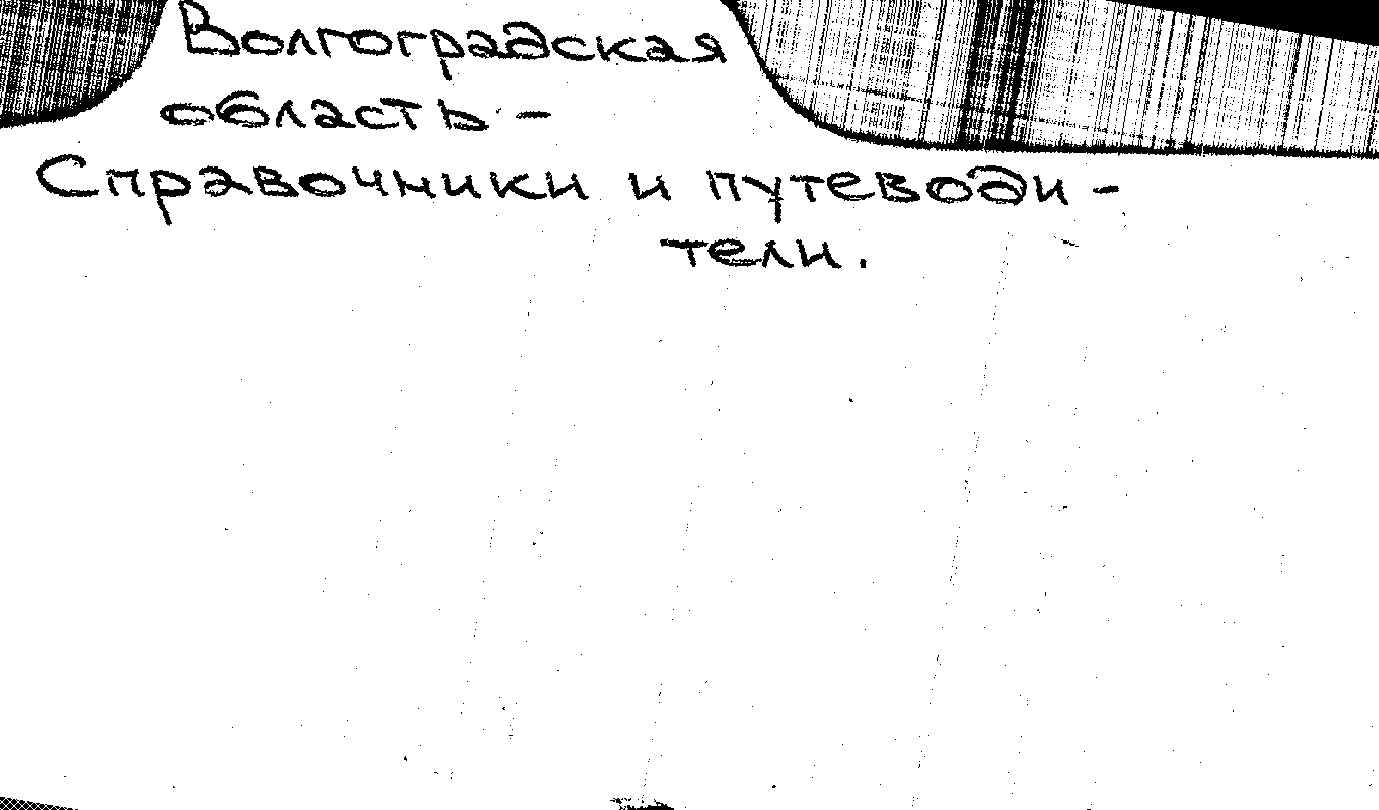 Волгоградская
область -
Справочники и путеводи -
тели.